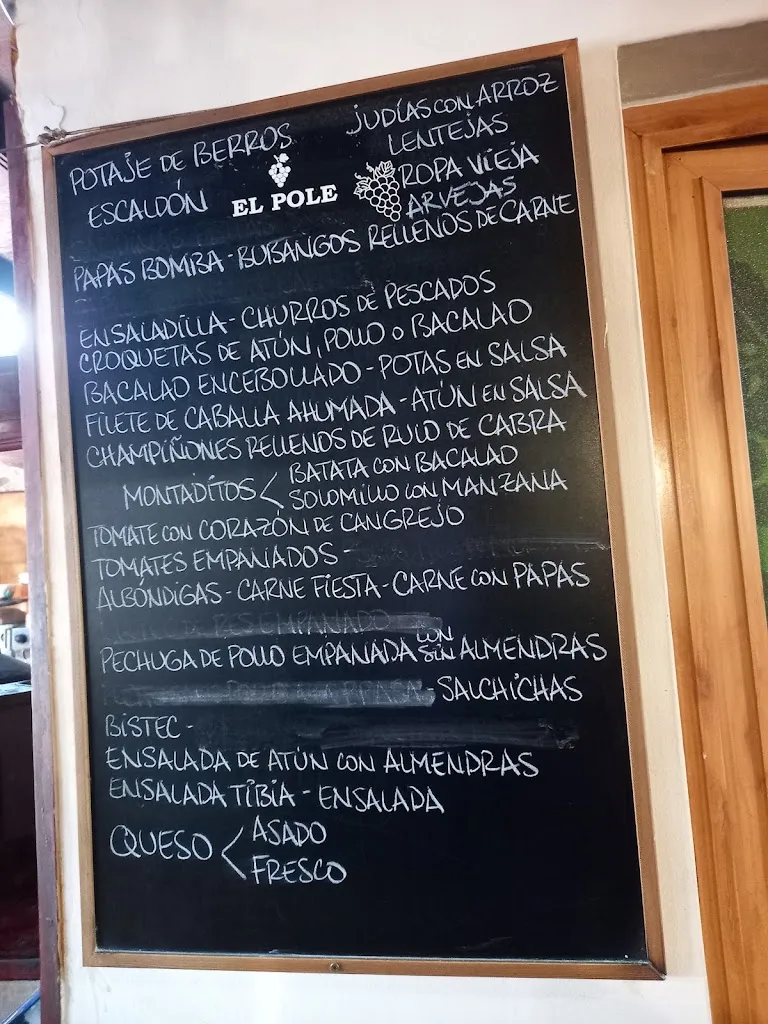 POTAJE DE BERROS
JUDÍAS CON ARROZ
LENTEJAS
ESCALDÓN
EL POLE
ROPA VIEJA
ARVEJAS
PAPAS BOMBA - BUBANGOS RELLENOS DE CARNE
ENSALADILLA - CHURROS DE PESCADOS
CROQUETAS DE ATÚN, POLLO o BACALAO
BACALAO ENCEBOLLADO - POTAS EN SALSA
FILETE DE CABALLA AHUMADA - ATÚN EN SALSA
CHAMPIÑONES RELLENOS DE RULO DE CABRA
MONTADITOS < BATATA CON BACALAO
SOLOMILLO CON MANZANA
TOMATE CON CORAZÓN DE CANGREJO
TOMATES EMPANADOS -
ALBÓNDIGAS - CARNE FIESTA - CARNE CON PAPAS
PECHUGA DE POLLO EMPANADA CON SIN ALMENDRAS
- SALCHICHAS
BISTEC -
ENSALADA DE ATÚN CON ALMENDRAS
ENSALADA TIBIA - ENSALADA
QUESO < ASADO
FRESCO